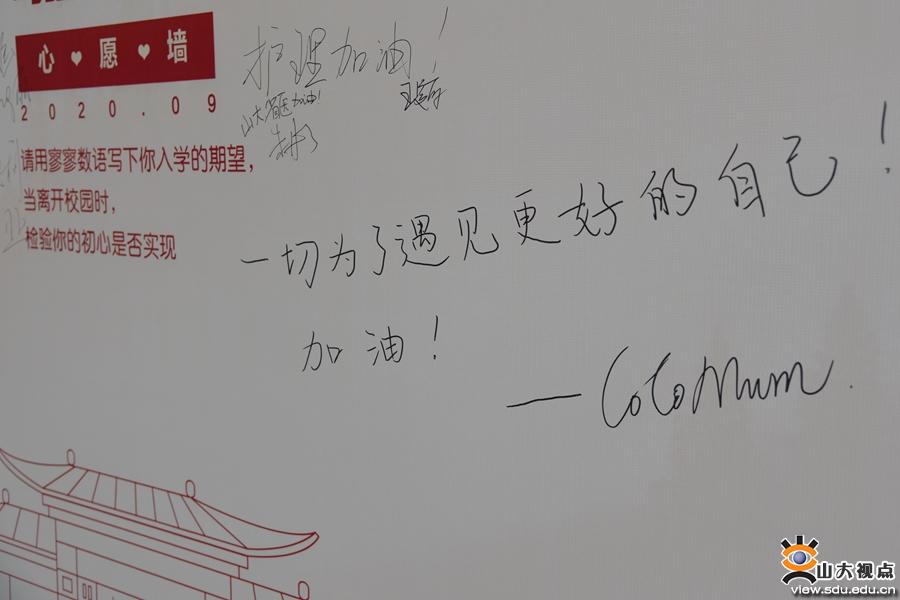 心♥愿♥墙
2020.09
请用寥寥数语写下你入学的期望，
当离开校园时，
检验你的初心是否实现
护理加油！
山大省医加油！
一切为了遇见更好的自己！
加油！
— CoCo Mum.
山大视点
view.sdu.edu.cn